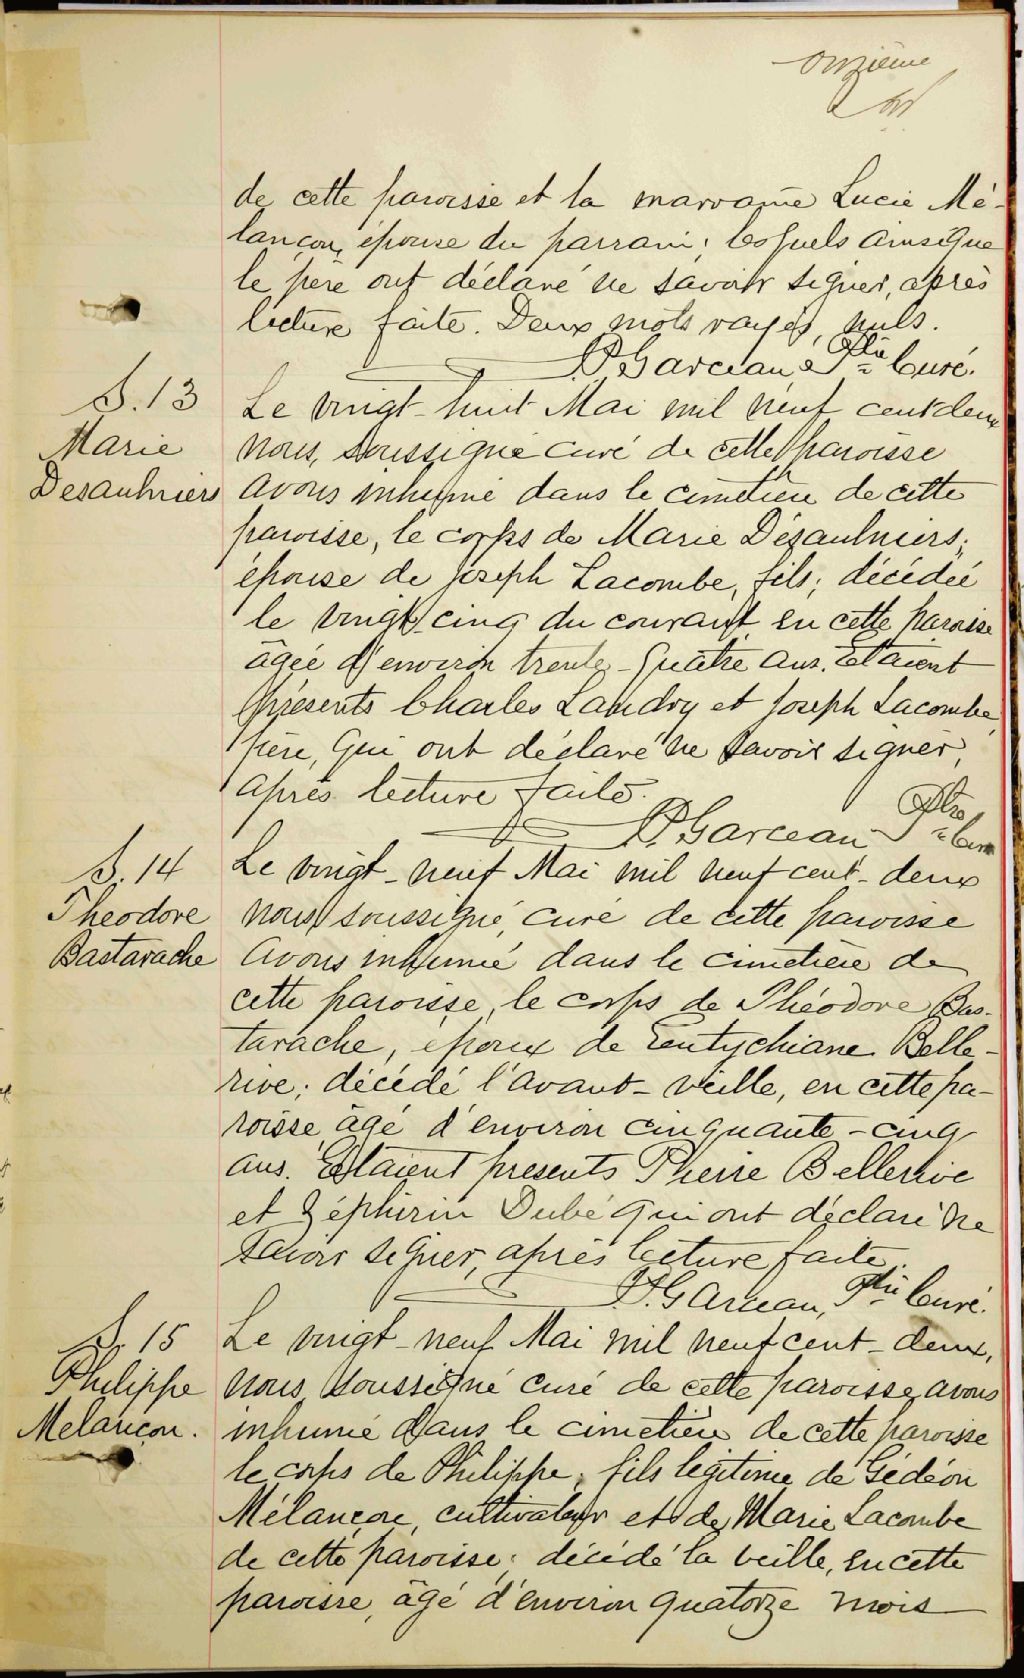 onzième
de cette paroisse et la marraine Lucie Mé-
lançon, épouse du parrain; lesquels ainsique
le père ont déclaré ne savoir signer, après
lecture faite. Deux mots rayés, nuls.
P. Garceau Ptre Curé.
S. 13
Marie
Desaulniers
Le vingt-huit Mai mil neuf cent deux
nous, soussigné curé de cette paroisse
avons inhumé dans le cimetière de cette
paroisse, le corps de Marie Désaulniers;
épouse de Joseph Lacombe, fils; décédée
le vingt-cinq du courant, en cette paroisse
âgée d'environ trente-quatre ans. Etaient
présents Charles Landry et Joseph Lacombe
père, qui ont déclaré ne savoir signer,
après lecture faite.
P. Garceau Ptre Curé
S. 14
Theodore
Bastarache
Le vingt-neuf Mai mil neuf cent-deux
nous soussigné, curé de cette paroisse
avons inhumé dans le cimetière de
cette paroisse, le corps de Théodore Bas-
tarache, époux de Eutychiane Belle-
rive; décédé l'avant-veille, en cette pa-
roisse âgé d'environ cinquante-cinq
ans. Etaient presents Pierre Bellerive
et Zéphirin Dubé qui ont déclaré ne
savoir signer, après lecture faite.
P. Garceau, Ptre Curé.
S. 15
Philippe
Melançon.
Le vingt-neuf Mai mil neuf cent-deux,
nous, soussigné curé de cette paroisse avons
inhumé dans le cimetière de cette paroisse
le corps de Philippe, fils légitime de Gédéon
Mélançon, cultivateur et de Marie Lacombe
de cette paroisse; décédé la veille, en cette
paroisse, âgé d'environ quatorze mois